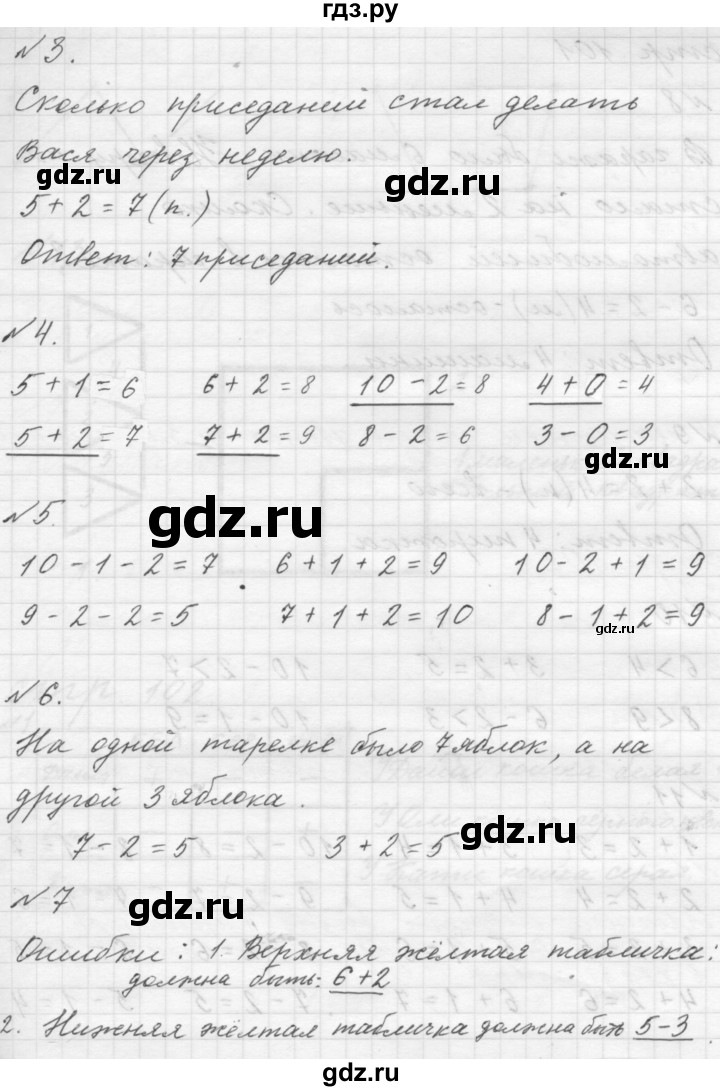 гдз.ру
№ 3.
Сколько приседаний стал делать
Вася через неделю.
gdz.ru
gdz.ru
5 + 2 = 7 (п.)
Ответ: 7 приседаний.
№ 4.
5 + 1 = 6 6 + 2 = 8 10 - 2 = 8 4 + 0 = 4
5 + 2 = 7 7 + 2 = 9 8 - 2 = 6 3 - 0 = 3
gdz.ru
№ 5.
gdz.ru
10 - 1 - 2 = 7 6 + 1 + 2 = 9 10 - 2 + 1 = 9
9 - 2 - 2 = 5 7 + 1 + 2 = 10 8 - 1 + 2 = 9
gdz.ru
№ 6.
На одной тарелке было 7 яблок, а на
другой 3 яблока.
7 - 2 = 5 3 + 2 = 5
gdz.ru
№ 7
gdz.ru
Ошибки: 1. Верхняя жёлтая табличка:
должна быть: 6 + 2
2. Нижняя жёлтая табличка должна быть 5 - 3.
gdz.ru